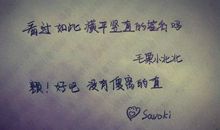 看过如此横平竖直的签名吗
毛栗小北北
额！好吧 没有傻禽的直
Savoki